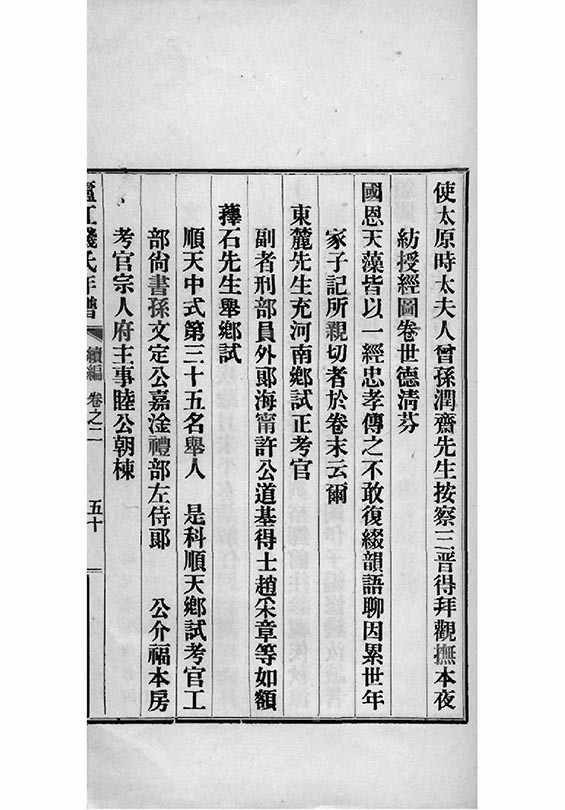 使太原時太夫人曾孫潤齋先生按察三晋得拜觀撫本夜
紡授經圖卷世德清芬
國恩天藻皆以一經忠孝傳之不敢復綴韻語聊因累世年
家子記所親切者於卷末云爾
東麓先生充河南鄉試正考官
副者刑部員外郎海甯許公道基得士趙宋章等如額
蘀石先生舉鄉試
順天中式第三十五名舉人 是科順天鄉試考官工
部尚書孫文定公嘉淦禮部左侍郎 公介福本房
考官宗人府主事睦公朝棟
錢氏年譜 續編 卷之二 五十